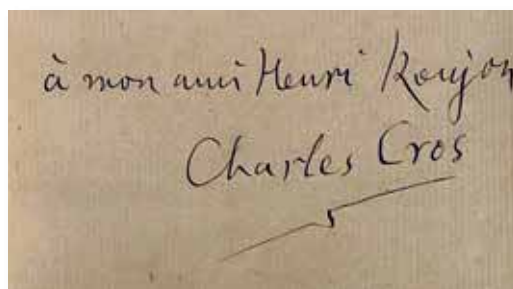 à mon ami Henri Roujon
Charles Cros